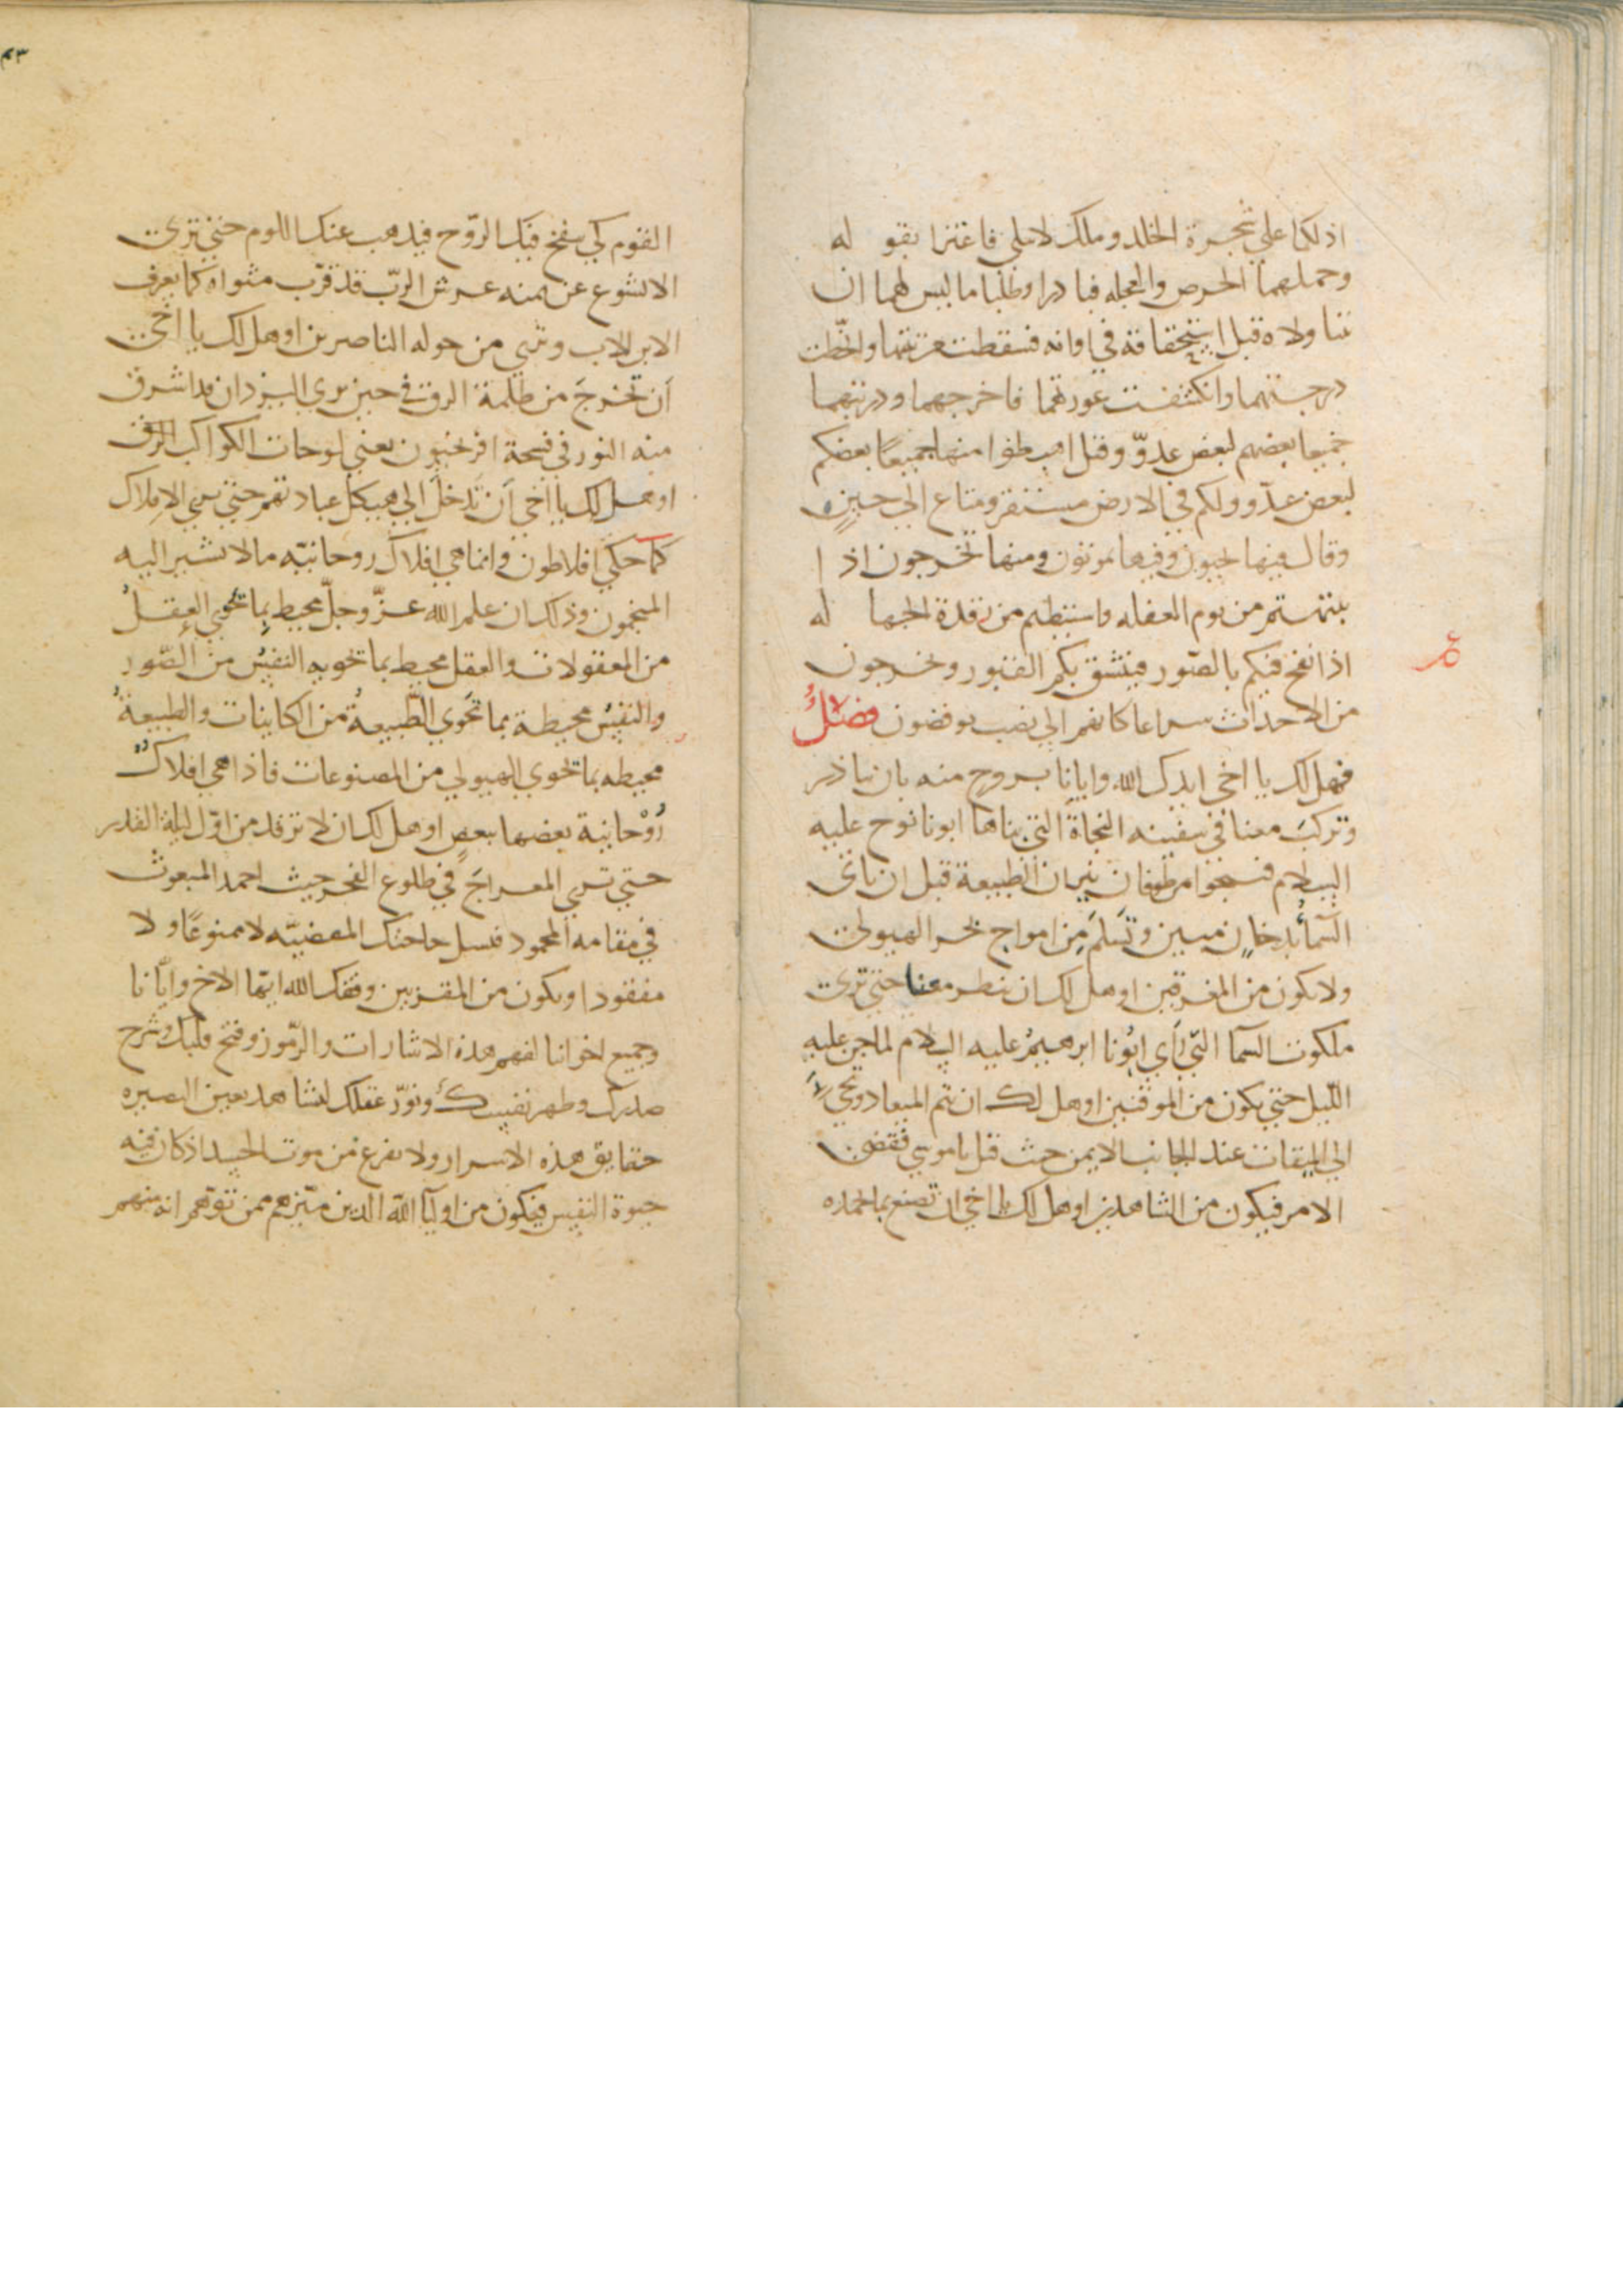 ادلكما على شجرة الخلد وملك لا يبلى فاغترا بقوله
وحملهما الحرص والعجله فبادرا وطلبا ما ليس لهما ان
يتناولاه قبل استحقاقه في اوانه فسقطت مرتبتهما وانحطت
درجتهما وانكشفت عورتهما فاخرجهما وذريتهما
جميعا بعضهم لبعض عدوّ وقيل اهبطوا منها جميعًا بعضكم
لبعض عدّو ولكم في الارض مستقر ومتاع الى حينٍ
وقال فيها تحيون وفيها تموتون ومنها تخرجون اذا
انتبهتم من نوم الغفله واستيقظتم من رقدة الجهاله
اذا نفخ فيكم بالصّور فينشق بكم القبور وتخرجون
من الاجداث سراعا كانهم الى نصب يوفضون فصلٌ
فهل لك يا اخي ايدك الله وايانا بروح منه بان تبادر
وتركبَ معنا في سفينه النجاةَ التي بناها ابونا نوح عليه
السلام فتنجوا من طوفان نيران الطبيعة قبل ان تاتى
السّمأُ بدخانٍ مبين وتَسْلَم من امواج بحر الهيولى
ولا تكون من المغرقين او هل لك ان تنظر معنا حتى ترى
ملكوت السما التّي رَأى ابُونا ابرهيمُ عليه السلام لما جن عليه
اللّيل حتى تكون من الموقنين او هل لك ان تتم الميعاد وتجىَ
الى الميقات عند الجانب الايمن حيث قيل يا موسى فقضى
الامر فتكون من الشاهدين او هل لك يا اخي ان تصنع ما عمله
القوم كي ينفخ فيك الرّوح فيذهب عنك اللوم حتى ترى
الايشوع عن يمنه عرش الرّب قد قرّب مثواه كما يعرف
الابن للاب وترى من حوله الناصرين او هل لك يا اخى
اَن تخرجَ من ظلمة الرق في حين ترى اليزدان قد اشرق
منه النور في فسحة افريخون يعني لوحات الكواكب الزرق
او هل لك يا اخي اَن تَدخلَ الى هيكل عباد تقم حتى ترى الافلاك
كما حكى افلاطون وانما هي افلاك روحانيّه ما لا تشير اليه
المنجمون وذلك ان علم الله عزّ وجلّ محيط بما تحوي العقلُ
من المعقولات والعقل محيط بما تحويه النفس من الصّور
والنفس محيطة بما تحَوي الطّبيعةُ من الكاينات والطبيعةُ
محيطه بما تحوي الهيولى من المصنوعات فاذا هي افلاكٌ
رُوْحانية بعضها ببعضٍ او هل لك ان لا ترقد من اوّل ليلة القدر
حتى ترى المعراجَ في طلوع الفجر حيث احمد المبعوث
في مقامه المحمود فتسل حاجتك المقضيّه لا ممنوعًا ولا
مفقودا وتكون من المقربين وفقك الله ايّها الاخ وايّانا
وجميع اخواننا لفهم هذه الاشارات والرّموز وفتح قلبك وشرح
صدرك وطهر نفسك ونوّر عقلك لتشاهد بعين البصيره
حقايق هذه الاسرار ولا تفزع من موت الجسد اذ كان فيه
حيوة النفس فتكون من اوليآ الله الذين ميّزهم ممن توهم انه منهم